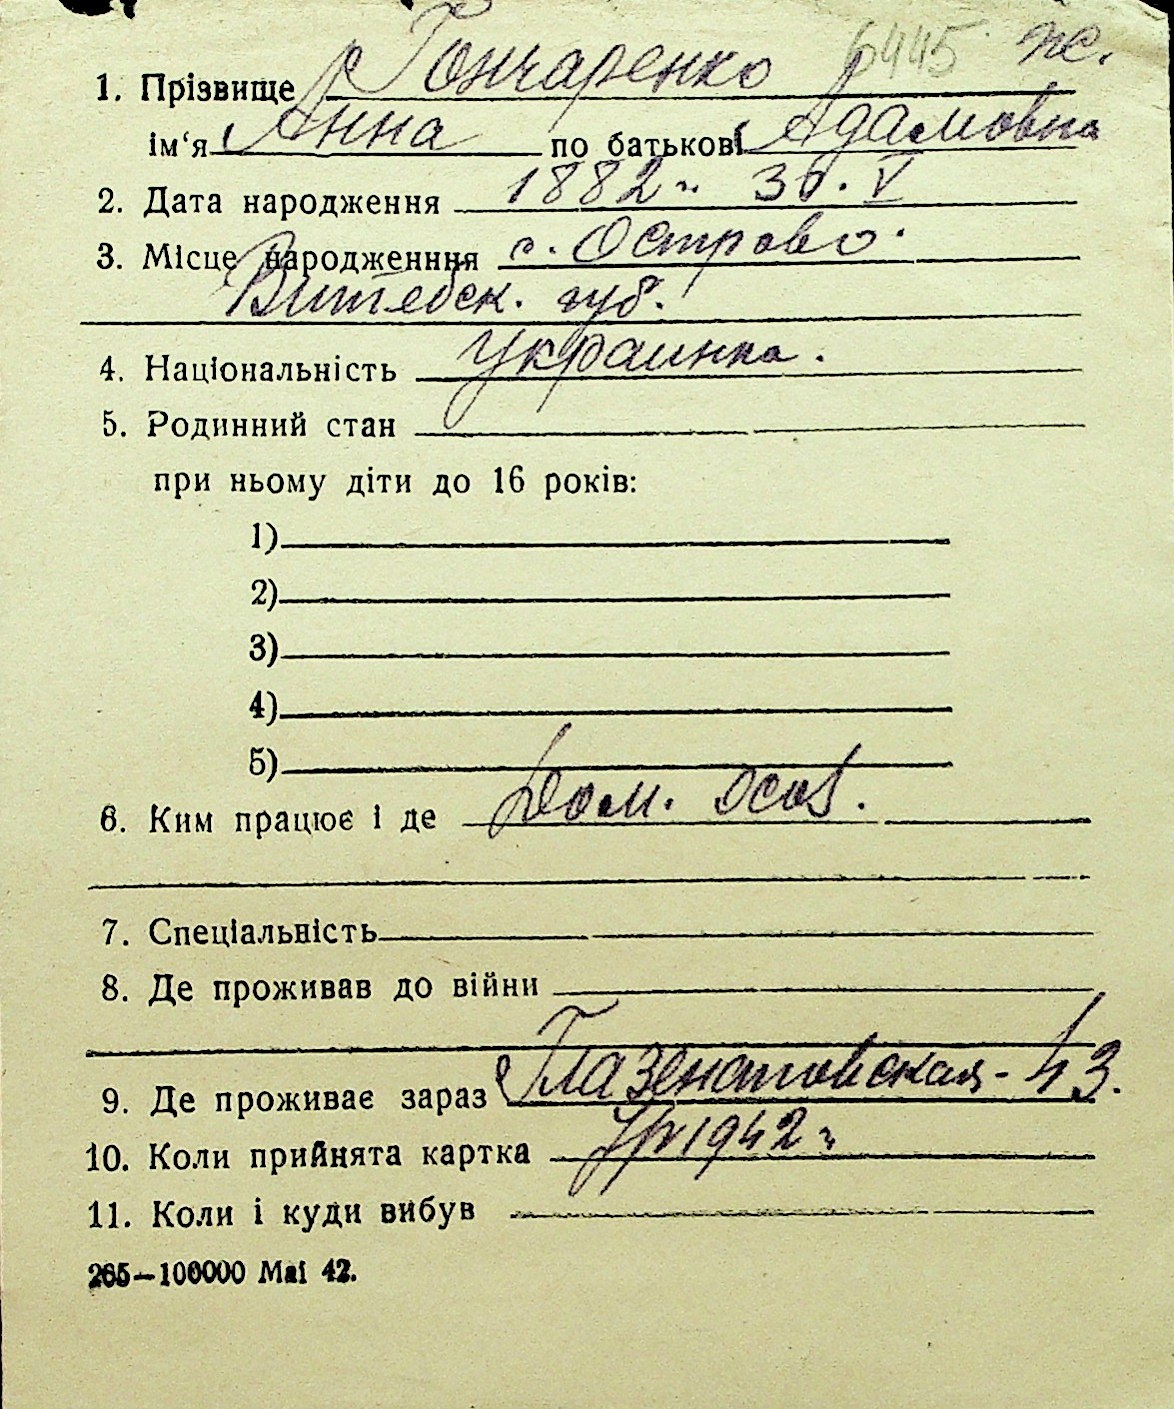 6445 ж.
1. Прізвище Гончаренко
ім‘я Анна по батькові Адамовна
2. Дата народження 1882 г. 30. V
3. Місце народженння с. Острово.
Витебск. губ.
4. Національність Украинка.
5. Родинний стан
при ньому діти до 16 років:
1)
2)
3)
4)
5)
6. Ким працює і де Дом. осоБ.
7. Спеціальність
8. Де проживав до війни
9. Де проживає зараз -43.
10. Коли прийнята картка 1942 г
11. Коли і куди вибув
265—100000 Маі 42.